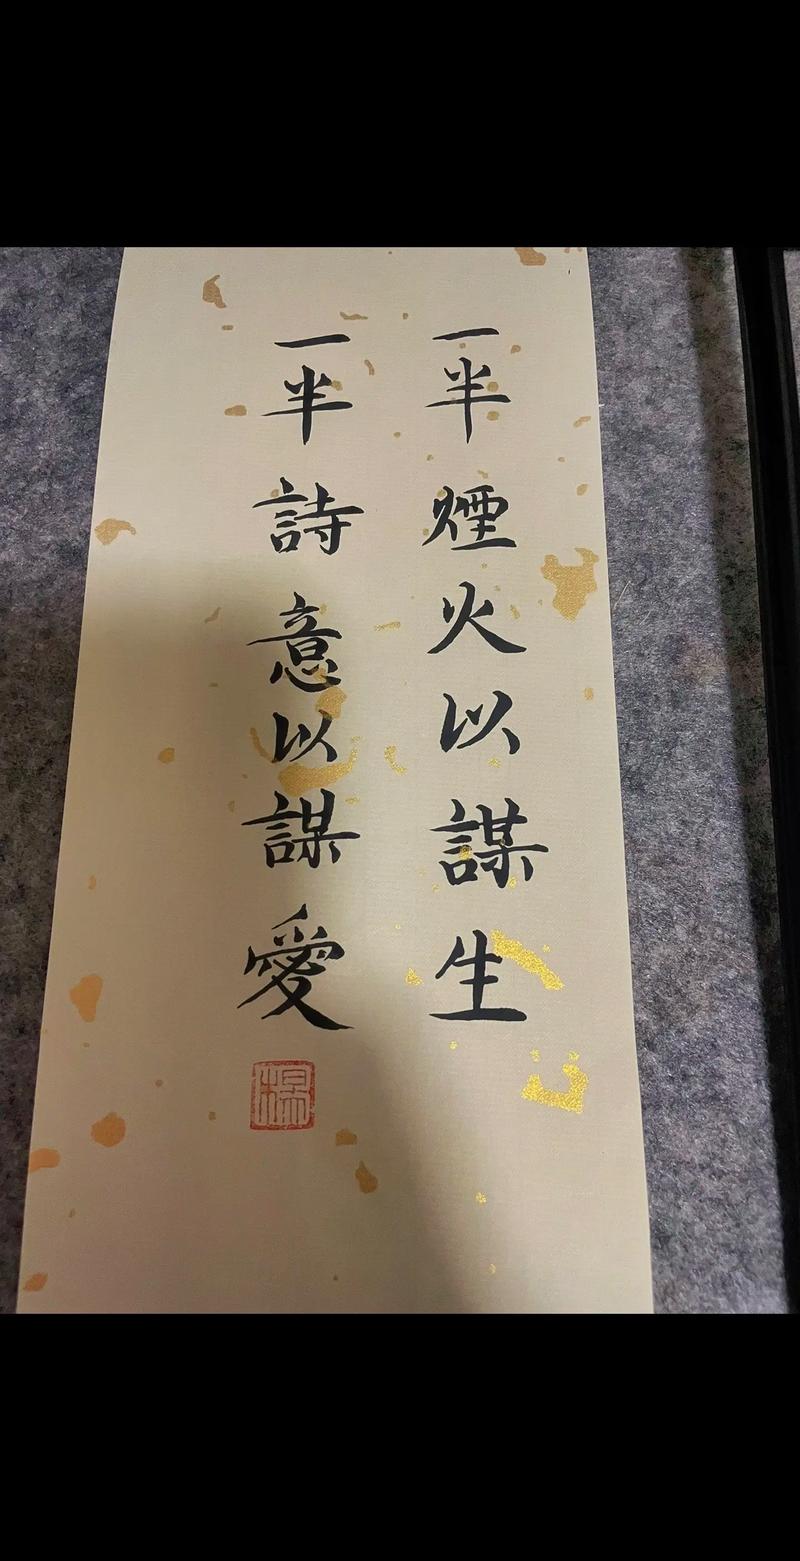 一半煙火以謀生
一半詩意以謀愛